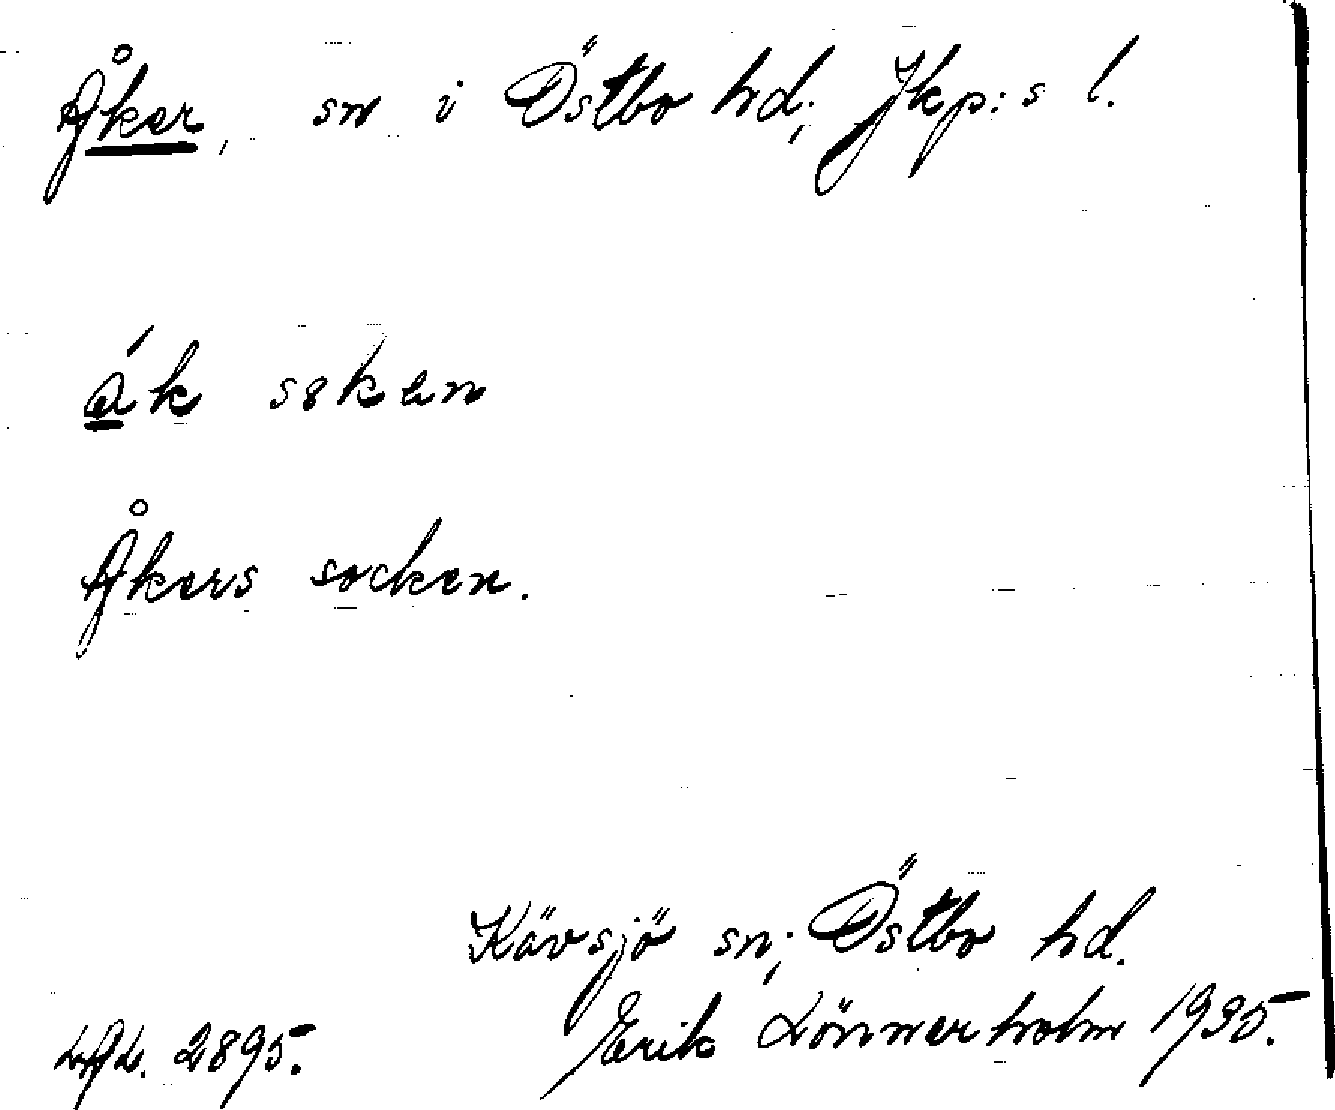 Åker, sn i Östbo hd; Jkp:s l.
ák soken
Åkers socken.
Kävsjö sn; Östbo hd.
LAL. 2895. Erik Lönnerholm 1935.